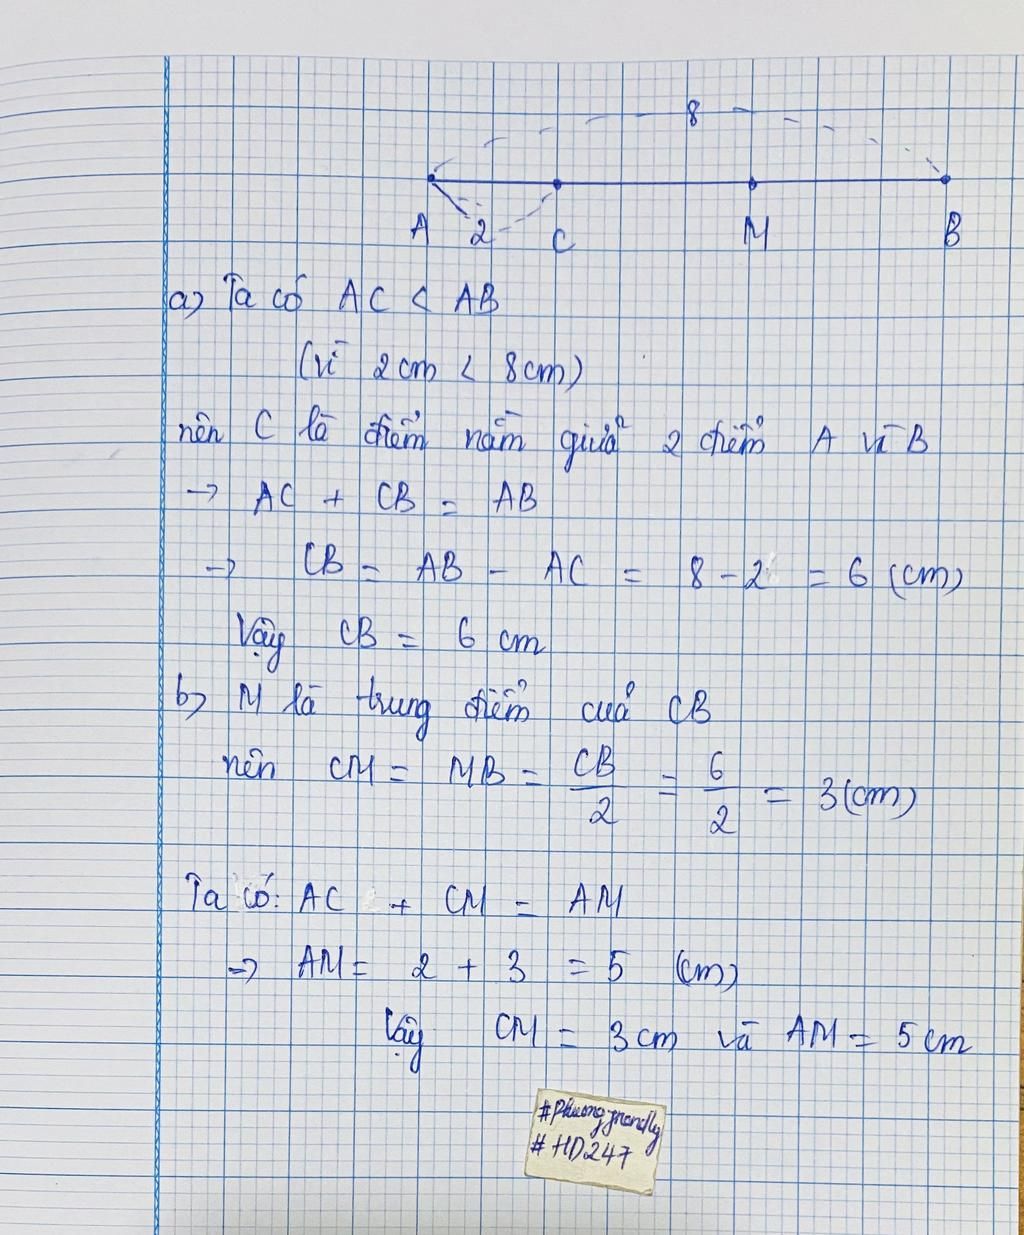 8
A 2 C M B
a) Ta có AC < AB
(vì 2cm < 8cm)
nên C là điểm nằm giữa 2 điểm A và B
→ AC + CB = AB
→ CB = AB - AC = 8 - 2 = 6 (cm)
Vậy CB = 6 cm
b) M là trung điểm của CB
nên CM = MB = CB/2 = 6/2 = 3 (cm)
Ta có: AC + CM = AM
→ AM = 2 + 3 = 5 (cm)
Vậy CM = 3cm và AM = 5cm
#Phuongfriendly
#HD247